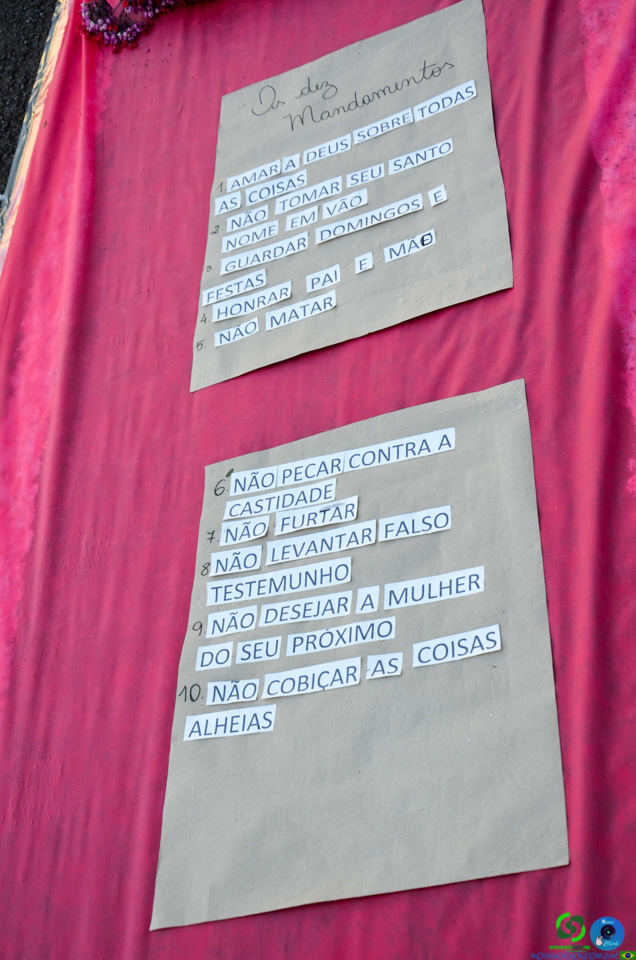 Os dez
Mandamentos
1. AMAR A DEUS SOBRE TODAS
AS COISAS
2. NÃO TOMAR SEU SANTO
NOME EM VÃO
3 GUARDAR DOMINGOS E
FESTAS
4. HONRAR PAI E MÃE
5. NÃO MATAR
6. NÃO PECAR CONTRA A
CASTIDADE
7. NÃO FURTAR
8 NÃO LEVANTAR FALSO
TESTEMUNHO
9. NÃO DESEJAR A MULHER
DO SEU PRÓXIMO
10. NÃO COBIÇAR AS COISAS
ALHEIAS